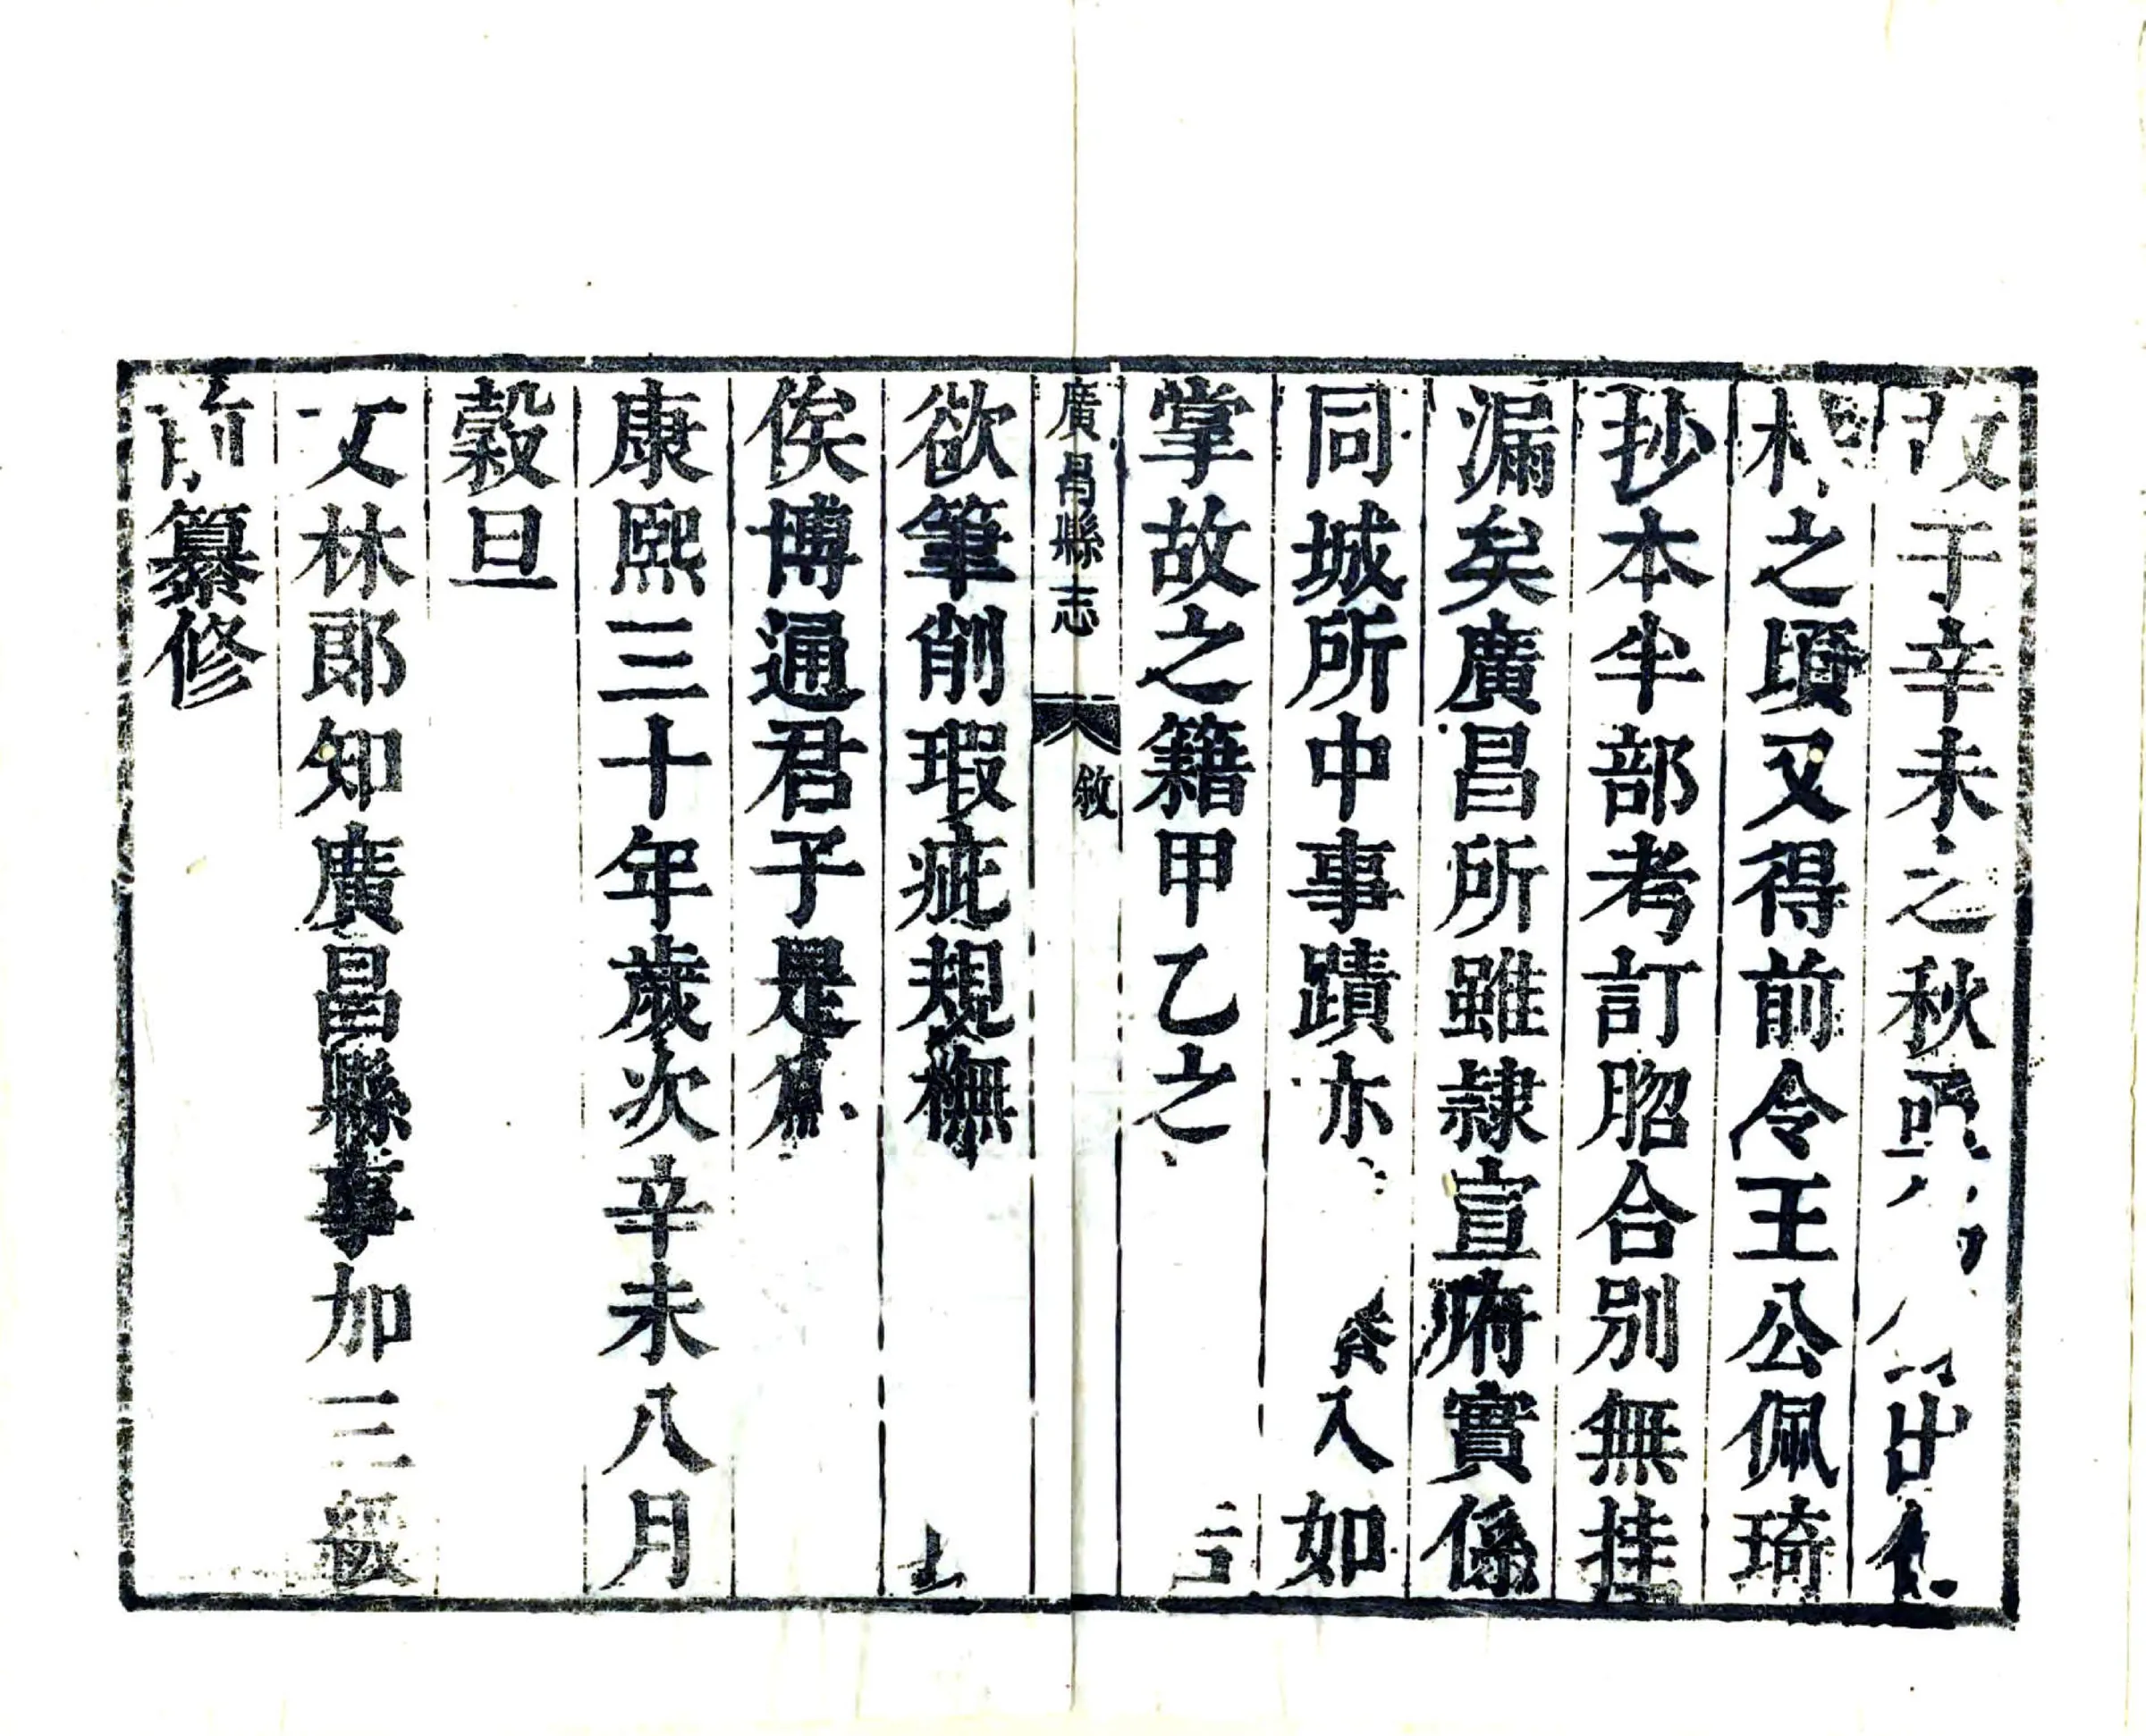 故于辛未之秋出
之頃又得前令王公佩琦
抄本半部考訂脗合別無挂
漏矣廣昌所雖隷宣府實係
同城所中事蹟亦入如
掌故之籍甲乙之
廣昌縣志 敘
欲筆削瑕疵規橅
俟博通君子是
康熙三十年歲次辛未八月
穀旦
文林郎知廣昌縣事加三級
前纂修